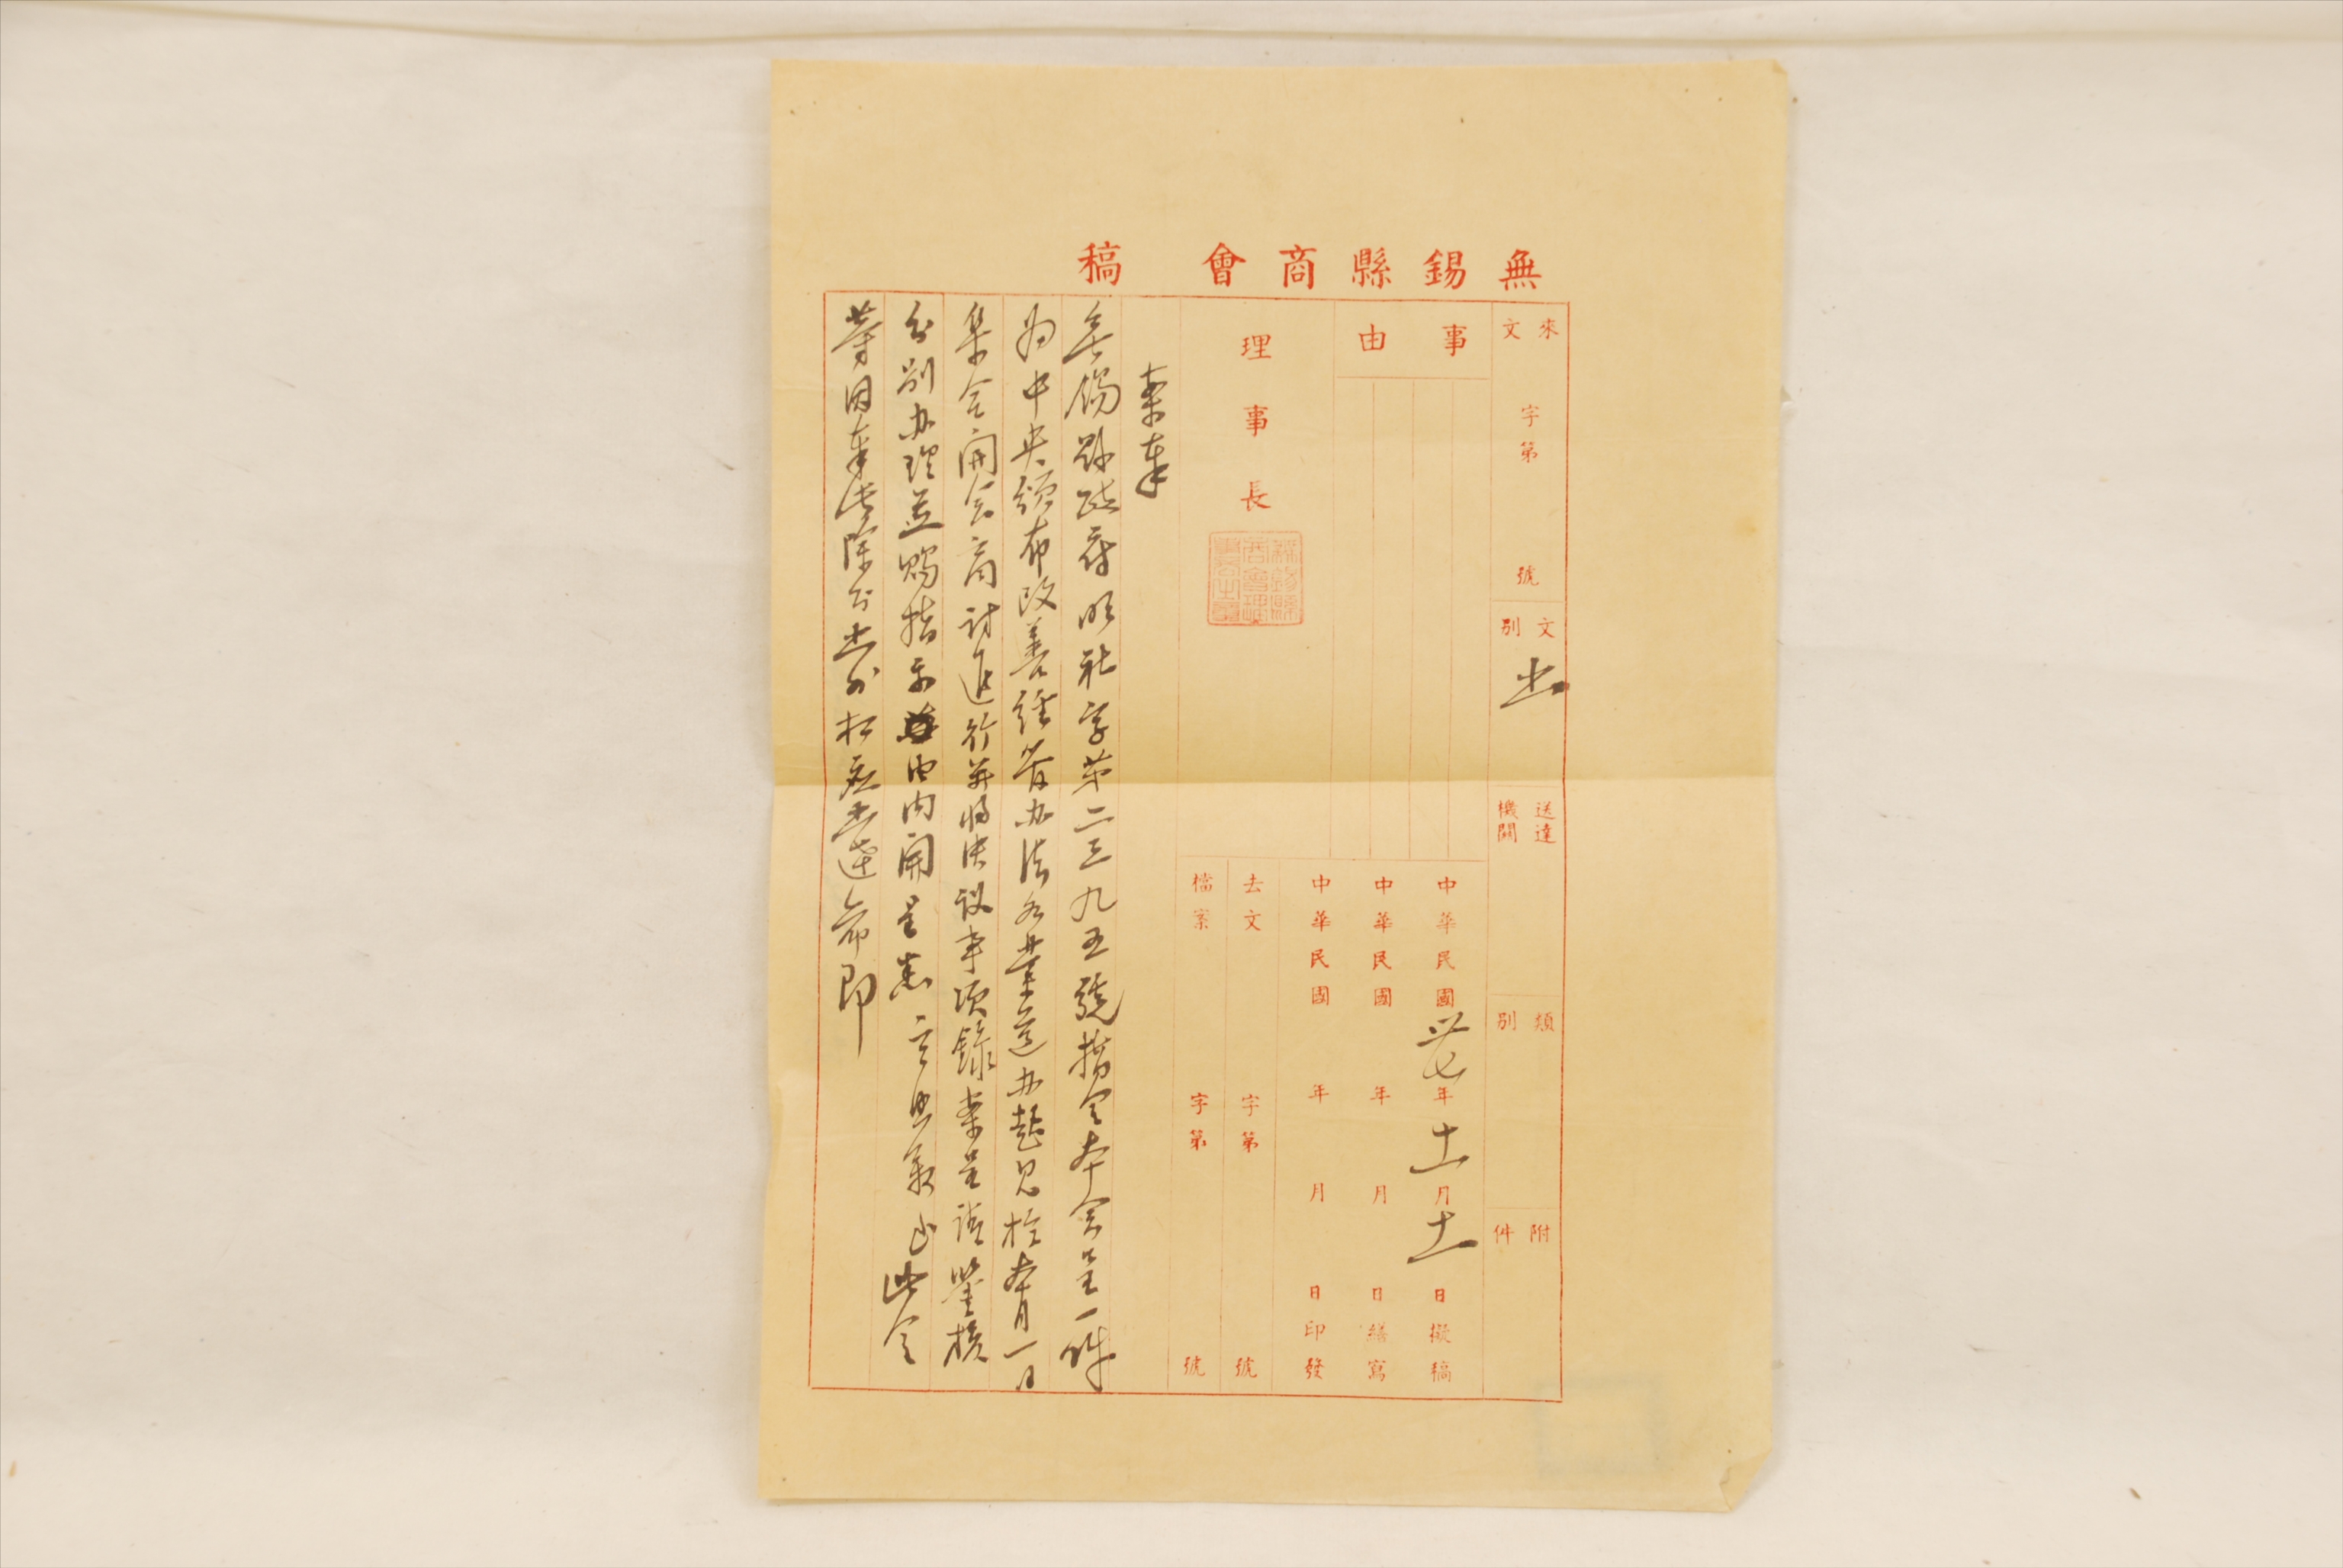 無錫縣商會 稿
來文 字第 號
文別 函
送達機關
類別
附件
事由
中華民國卅七年十一月十一日擬稿
中華民國 年 月 日繕寫
中華民國 年 月 日印發
理事長
去文 字第 號
檔案 字第 號
案奉
無錫縣政府 社字第二三九五號指令本會呈一件
為中央頒布改善經 办法各業遵办起見於本月一日
集合開會商討進行并將決议事項錄案呈請鑒核
分別办理並賜指示由內開呈悉 此令
等因奉此除分函外相应函達 即